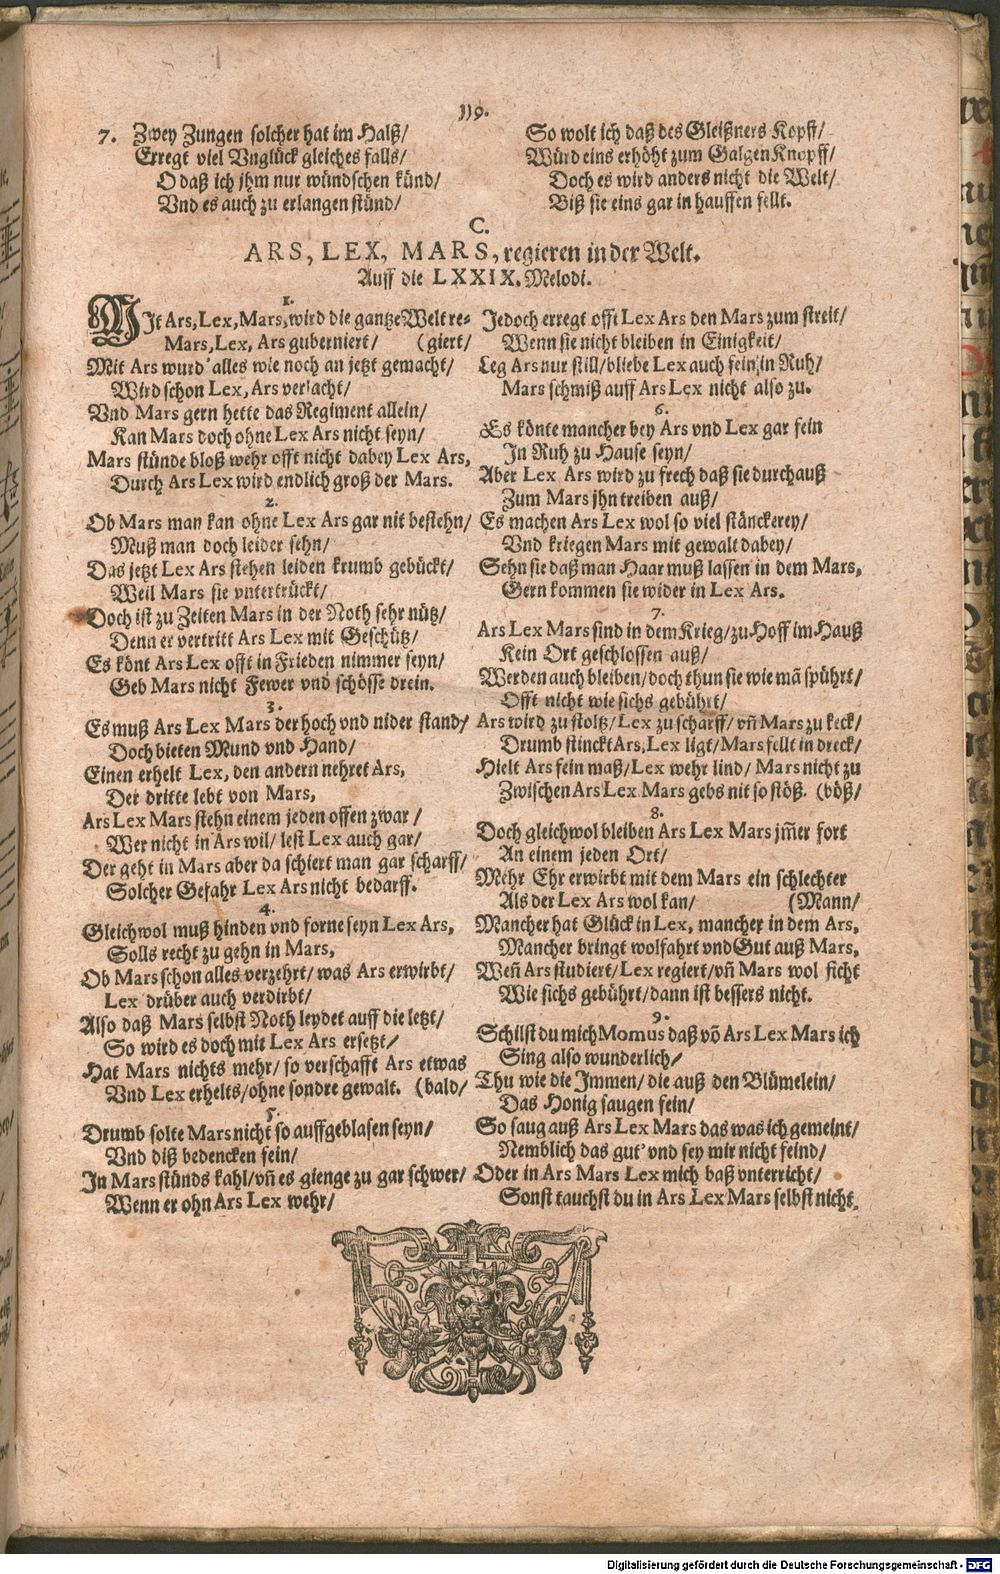 119.
7. Zwey Zungen solcher hat im Halß/
Erregt viel Vnglück gleiches falls/
O daß ich jhm nur wündschen künd/
Vnd es auch zu erlangen stünd/
So wolt ich daß des Gleißners Kopff/
Würd eins erhöht zum Galgen Knopff/
Doch es wird anders nicht die Welt/
Biß sie eins gar in hauffen fellt.
C.
ARS, LEX, MARS, regieren in der Welt.
Auff die LXXIX. Melodi.
1.
MIt Ars, Lex, Mars, wird die gantze Welt re-
Mars, Lex, Ars guberniert/ (giert/
Mit Ars wurd alles wie noch an jetzt gemacht/
Wird schon Lex, Ars veracht/
Vnd Mars gern hette das Regiment allein/
Kan Mars doch ohne Lex Ars nicht seyn/
Mars stünde bloß wehr offt nicht dabey Lex Ars,
Durch Ars Lex wird endlich groß der Mars.
2.
Ob Mars man kan ohne Lex Ars gar nit bestehn/
Muß man doch leider sehn/
Das jetzt Lex Ars stehen leiden krumb gebückt/
Weil Mars sie vntertrückt/
Doch ist zu Zeiten Mars in der Noth sehr nütz/
Denn er vertritt Ars Lex mit Geschütz/
Es könt Ars Lex offt in Frieden nimmer seyn/
Geb Mars nicht Fewer vnd schösse drein.
3.
Es muß Ars Lex Mars der hoch vnd nider stand/
Doch bieten Mund vnd Hand/
Einen erhelt Lex, den andern nehret Ars,
Der dritte lebt von Mars,
Ars Lex Mars stehn einem jeden offen zwar/
Wer nicht in Ars wil/ lest Lex auch gar/
Der geht in Mars aber da schiert man gar scharff/
Solcher Gefahr Lex Ars nicht bedarff.
4.
Gleichwol muß hinden vnd forne seyn Lex Ars,
Solls recht zu gehn in Mars,
Ob Mars schon alles verzehrt/ was Ars erwirbt/
Lex drüber auch verdirbt/
Also daß Mars selbst Noth leydet auff die letzt/
So wird es doch mit Lex Ars ersetzt/
Hat Mars nichts mehr/ so verschafft Ars etwas
Vnd Lex erhelts/ ohne sondre gewalt. (bald/
5.
Drumb solte Mars nicht so auffgeblasen seyn/
Vnd diß bedencken fein/
In Mars stünds kahl/ vn̄ es gienge zu gar schwer/
Wenn er ohn Ars Lex wehr/
Jedoch erregt offt Lex Ars den Mars zum streit/
Wenn sie nicht bleiben in Einigkeit/
Leg Ars nur still/ bliebe Lex auch fein in Ruh/
Mars schmiß auff Ars Lex nicht also zu.
6.
Es könte mancher bey Ars vnd Lex gar fein
In Ruh zu Hause seyn/
Aber Lex Ars wird zu frech daß sie durchauß
Zum Mars jhn treiben auß/
Es machen Ars Lex wol so viel stänckerey/
Vnd kriegen Mars mit gewalt dabey/
Sehn sie daß man Haar muß lassen in dem Mars,
Gern kommen sie wider in Lex Ars.
7.
Ars Lex Mars sind in dem Krieg/ zu Hoff im Hauß
Kein Ort geschlossen auß/
Werden auch bleiben/ doch thun sie wie mā spührt/
Offt nicht wie sichs gebührt/
Ars wird zu stoltz/ Lex zu scharff/ vn̄ Mars zu keck/
Drumb stinckt Ars, Lex ligt/ Mars fellt in dreck/
Hielt Ars fein maß/ Lex wehr lind/ Mars nicht zu
Zwischen Ars Lex Mars gebs nit so stöß. (böß/
8.
Doch gleichwol bleiben Ars Lex Mars jm̄er fort
An einem jeden Ort/
Mehr Ehr erwirbt mit dem Mars ein schlechter
Als der Lex Ars wol kan/ (Mann/
Mancher hat Glück in Lex, mancher in dem Ars,
Mancher bringt wolfahrt vnd Gut auß Mars,
Wen̄ Ars studiert/ Lex regiert/ vn̄ Mars wol ficht
Wie sichs gebührt/ dann ist bessers nicht.
9.
Schilst du mich Momus daß vō Ars Lex Mars ich
Sing also wunderlich/
Thu wie die Immen/ die auß den Blümelein/
Das Honig saugen fein/
So saug auß Ars Lex Mars das was ich gemeint/
Nemblich das gut' vnd sey mir nicht feind/
Oder in Ars Mars Lex mich baß vnterricht/
Sonst tauchst du in Ars Lex Mars selbst nicht.
Digitalisierung gefördert durch die Deutsche Forschungsgemeinschaft - DFG